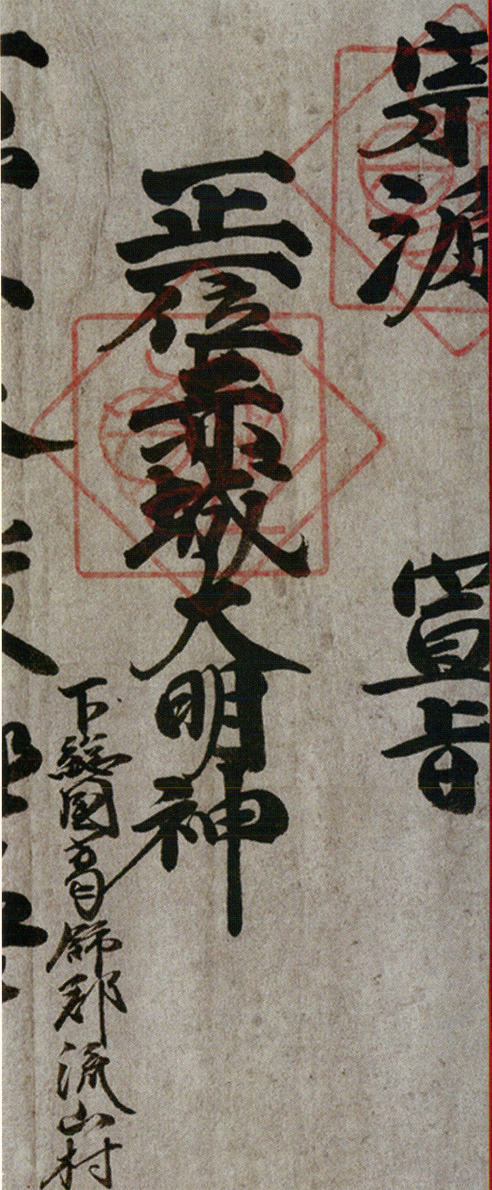 宗源 宣旨
正一位赤城大明神
下総国葛飾郡流山村